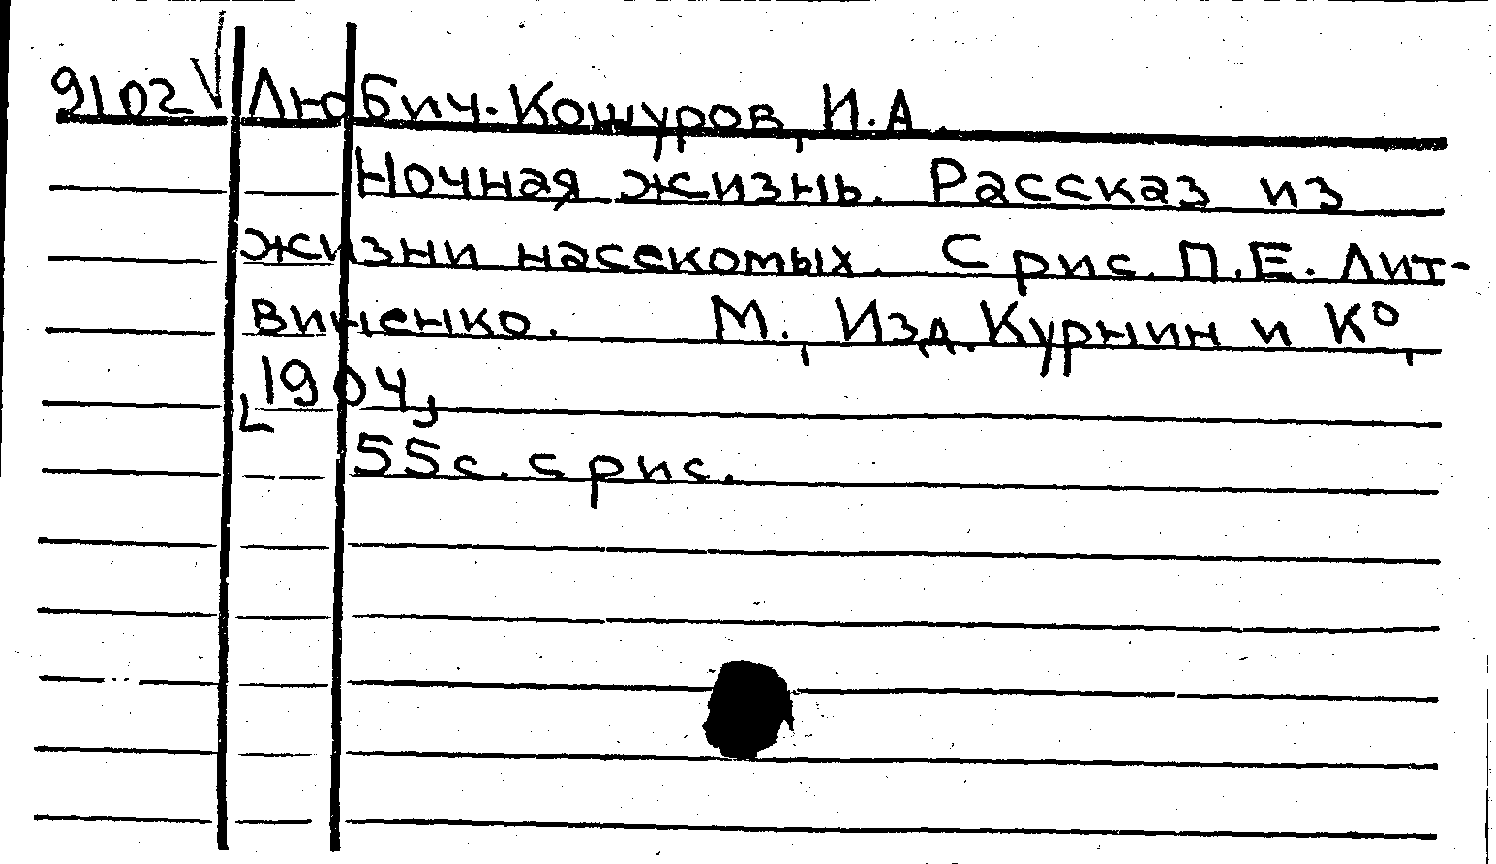 9102 Любич-Кошуров, И.А.
Ночная жизнь. Рассказ из
жизни насекомых. С рис. П.Е. Лит-
виненко. М., Изд. Курнин и К°,
[1904]
55 с. с рис.